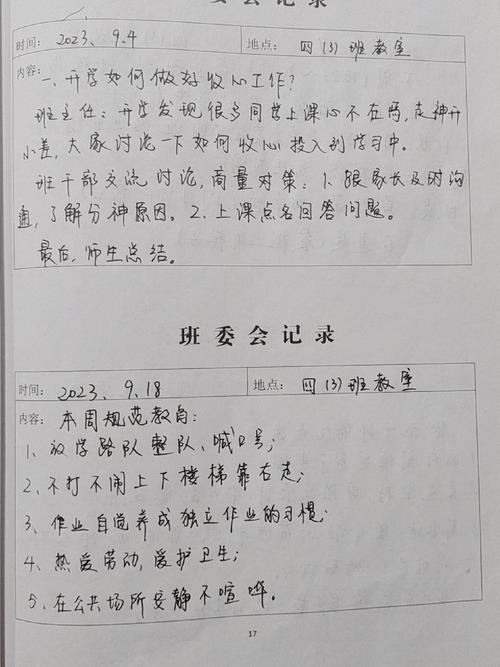 委会记录
时间: 2023. 9.4 地点: 四(3)班教室
内容: 一、开学如何做好收心工作?
班主任:开学发现很多同学上课心不在焉,走神开
小差,大家讨论一下如何收心投入到学习中。
班干部交流讨论,商量对策:1、跟家长及时沟
通,了解分神原因。2.上课点名回答问题。
最后,师生总结。
班委会记录
时间: 2023. 9.18 地点: 四(3)班教室
内容: 本周规范教育:
1、放学路队整队、喊口号;
2、不打不闹上下楼梯靠右走;
3、作业自觉养成独立作业的习惯;
4、热爱劳动,爱护卫生;
5、在公共场所安静不喧哗。
17